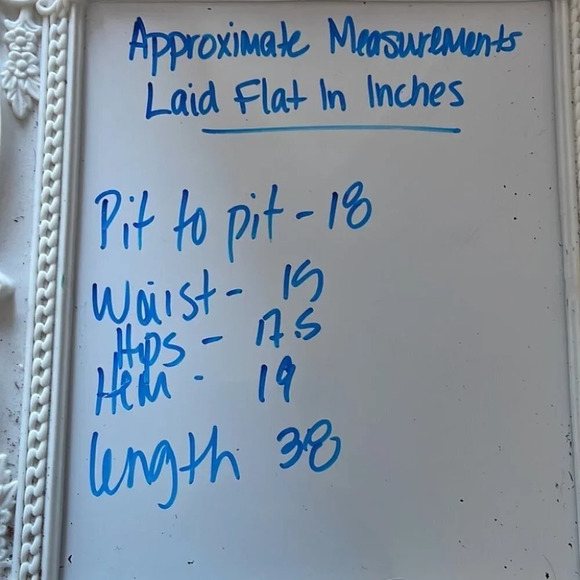 Approximate Measurements
Laid Flat In Inches
Pit to pit - 18
Waist - 15
Hips - 17.5
Hem - 19
length 38